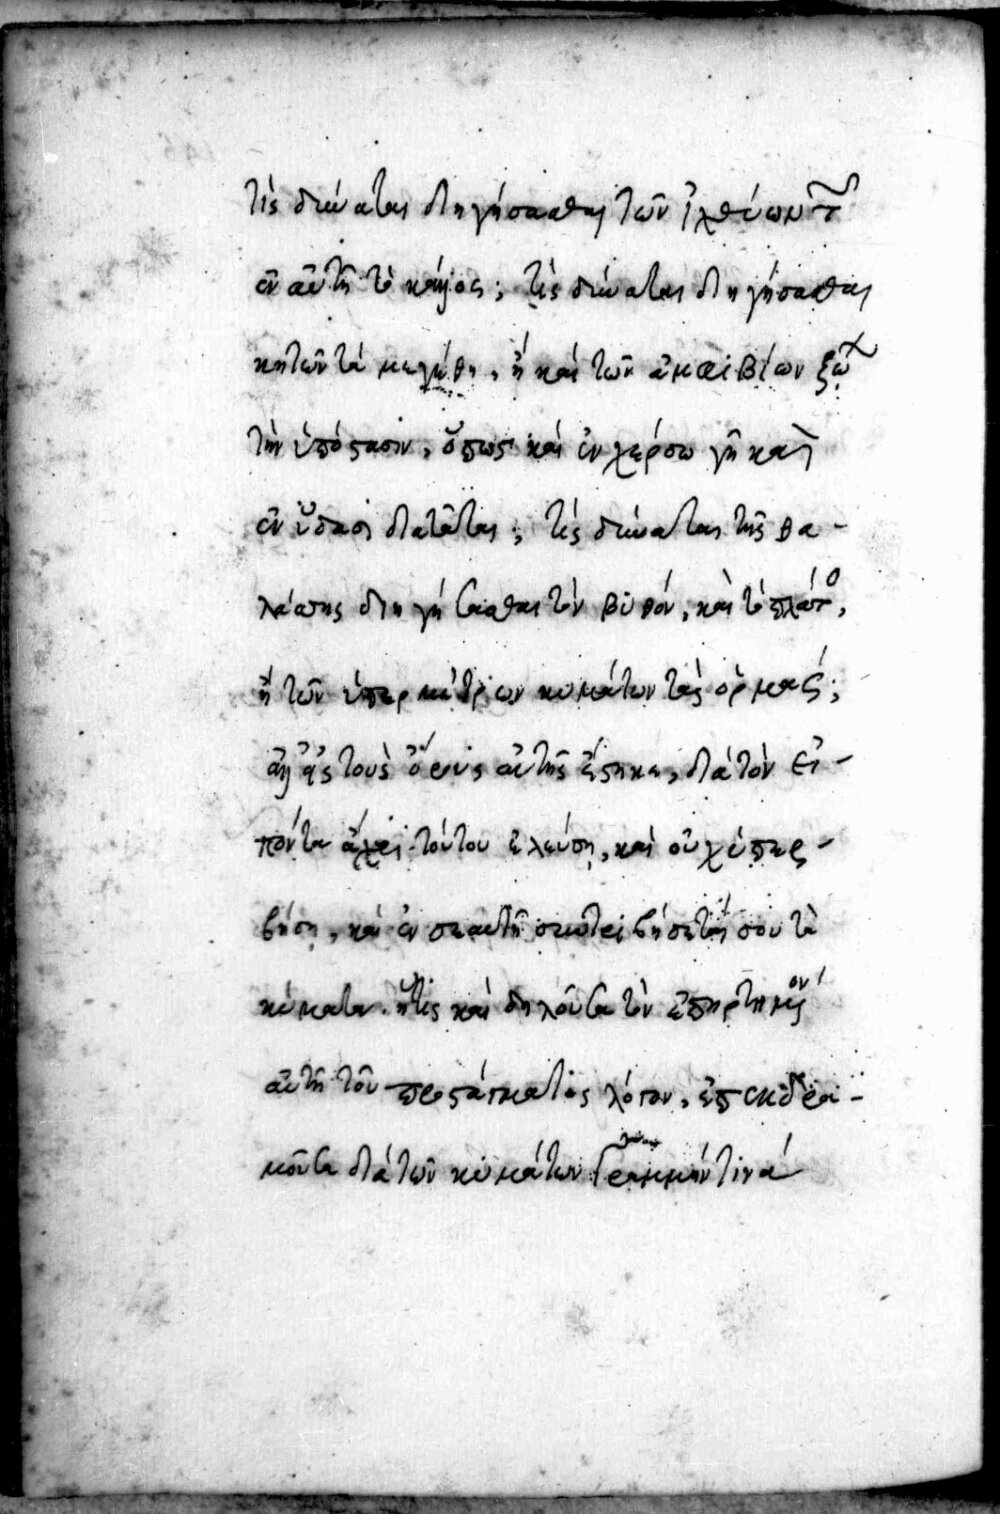 τίς δύναται διηγήσασθαι τῶν ἰχθύων τῶν
ἐν αὐτῇ τὸ κάλλος; τίς δύναται διηγήσασθαι
κητῶν τὰ μεγέθη, ἢ καὶ τῶν ἀμφιβίων ζώων
τὴν ὑπόστασιν, ὅπως καὶ ἐν χέρσω γῆ καὶ
ἐν ὕδασι διαιτᾶται; τίς δύναται τῆς θα-
λάσσης διηγήσασθαι τὸν βυθόν, καὶ τὸ πλάτος,
ἢ τῶν ὑπερμέτρων κυμάτων τὰς ὁρμάς;
ἀλλ' εἰς τοὺς ὅρους αὐτῆς ἕστηκε, διὰ τὸν εἰ-
πόντα ἄχρι τούτου ἐλεύση, καὶ οὐχ ὑπερ-
βήση, καὶ ἐν σεαυτῇ συντριβήσεταί σου τὰ
κύματα. ἥτις καὶ δηλοῦσα τὸν ἐπηρτημένον
αὐτῇ τοῦ προστάγματος λόγον, ἐπεκδρα-
μοῦσα διὰ τῶν κυμάτων γραμμήν τινα